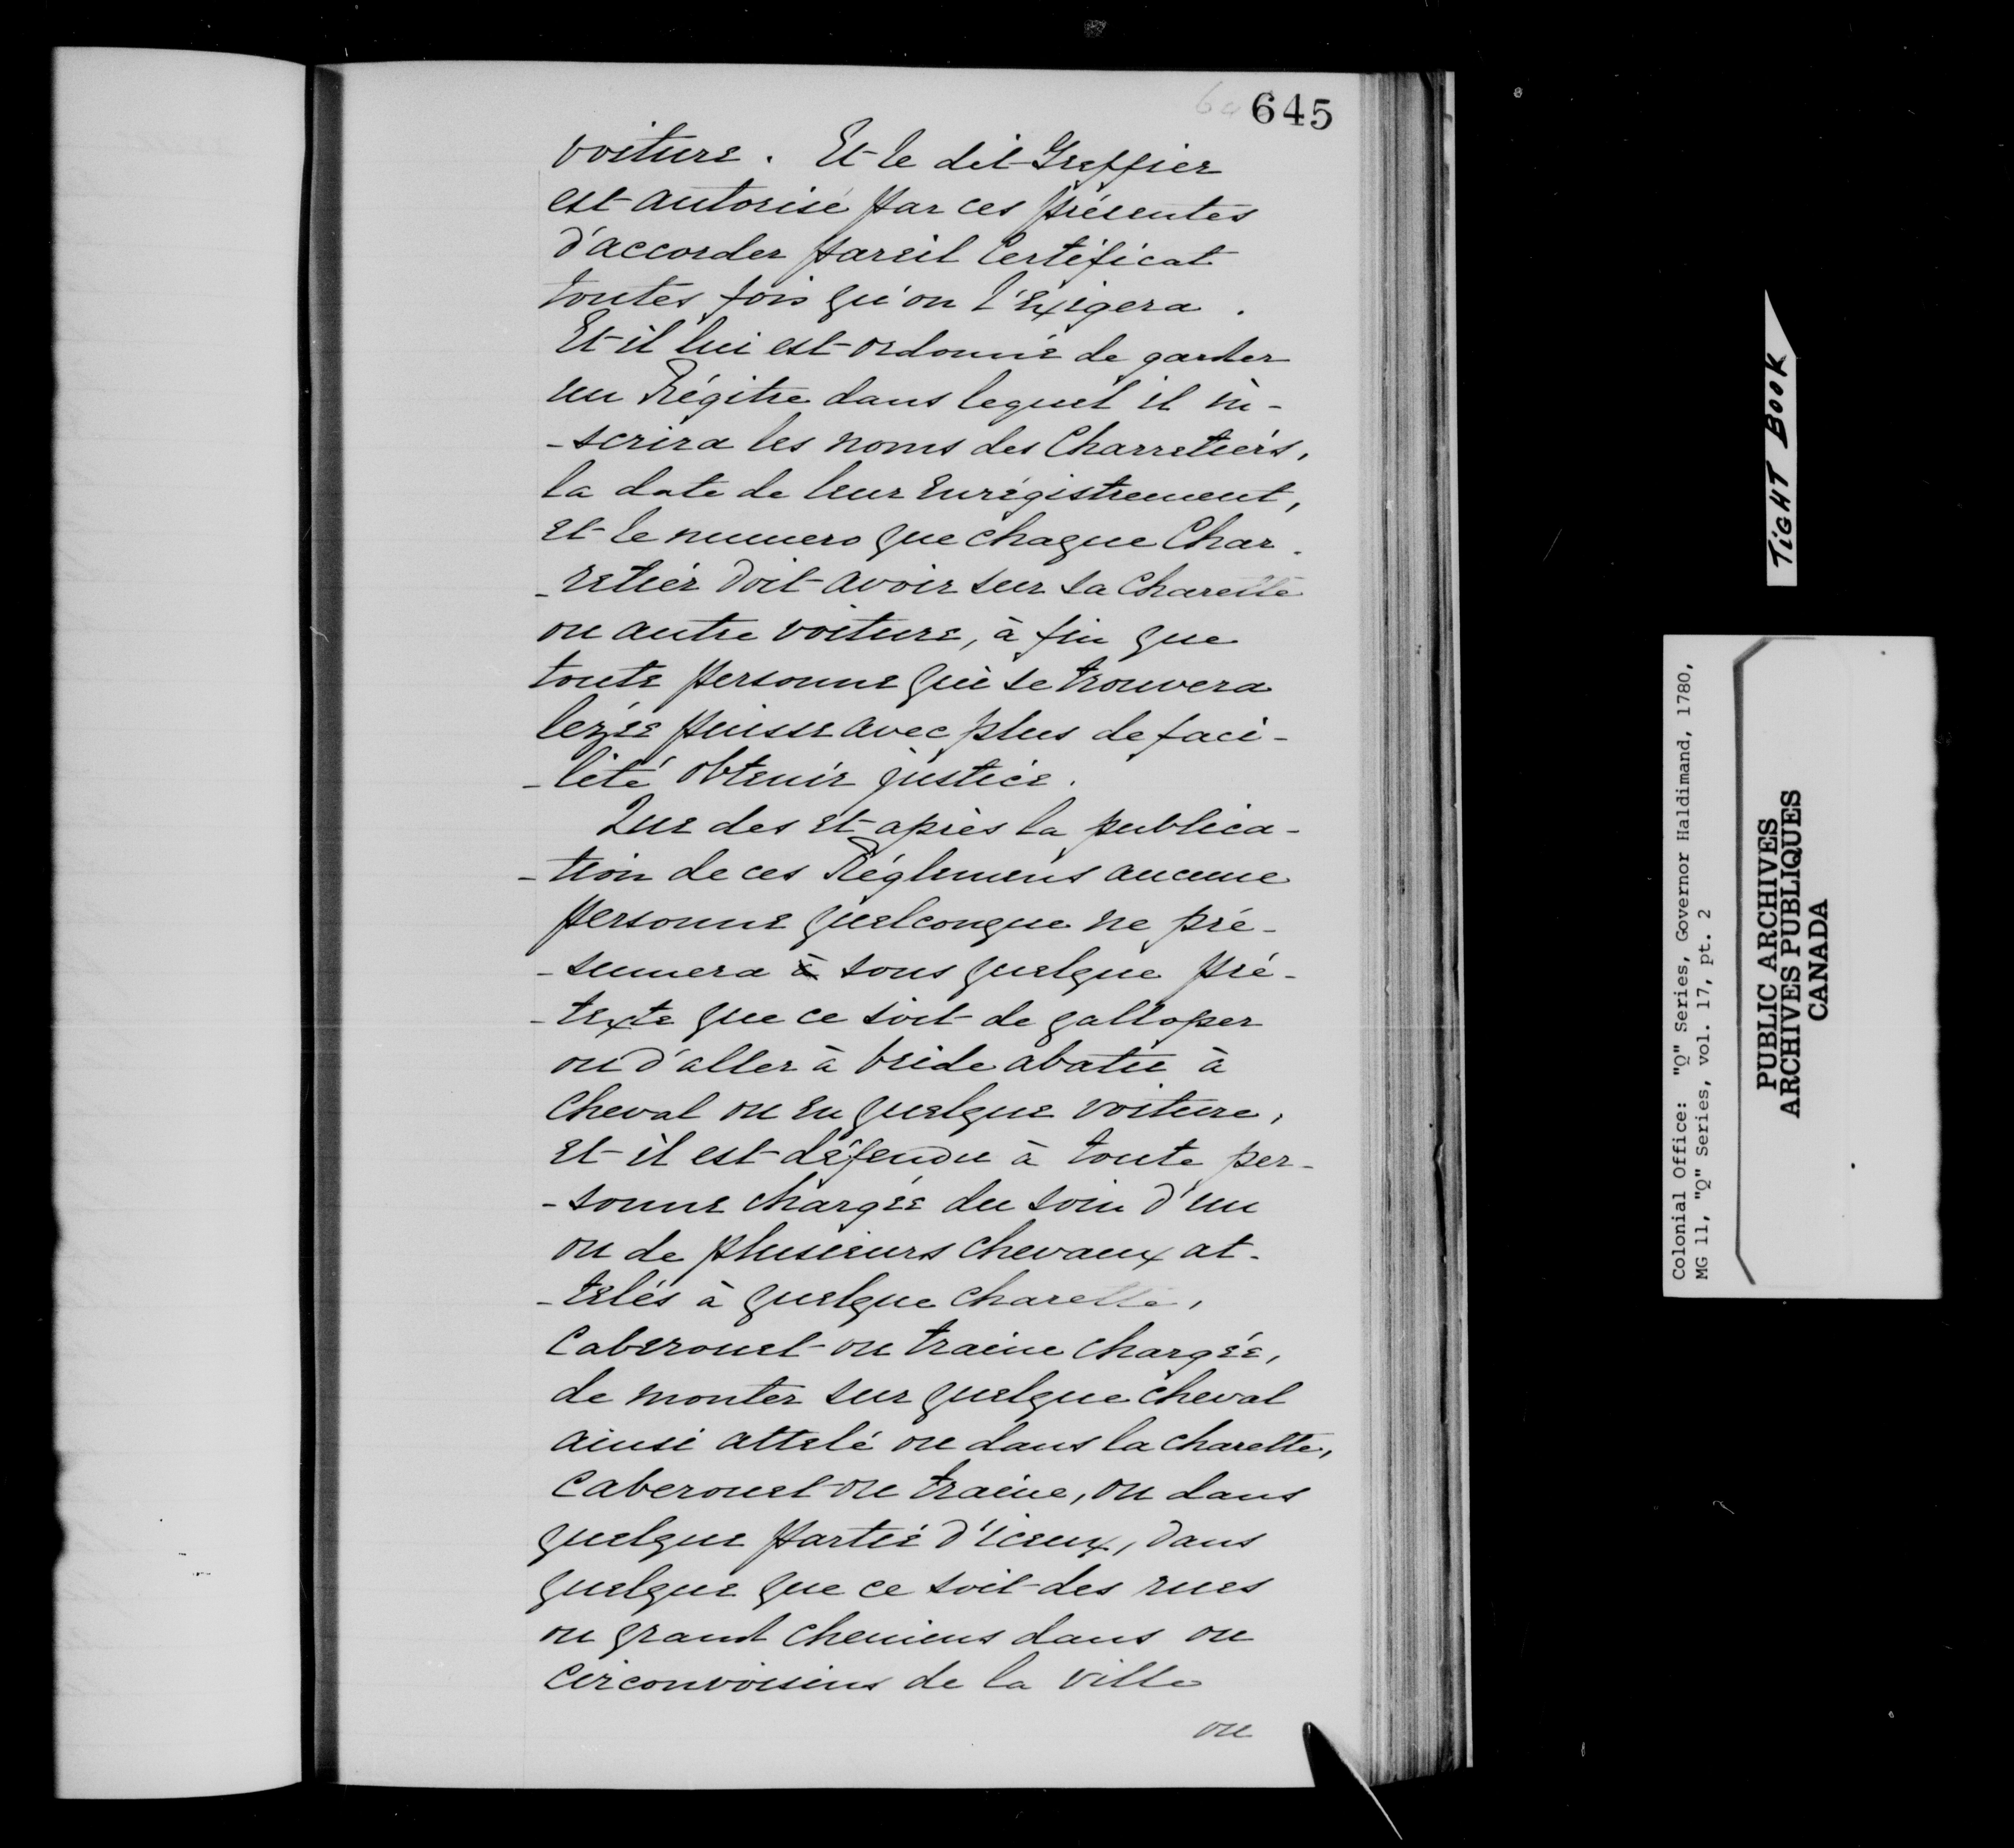 645
voiture. Et le dit Greffier
est autorisé par ces présentes
d'accorder pareil Certificat
toutes fois qu'on l'exigera.
Et il lui est ordonné de garder
un Régitre dans lequel il in-
-scrira les noms des Charretiers,
la date de leur enrégistrement,
et le numero que chaque Char-
-retier doit avoir sur sa Charette
ou autre voiture, à fin que
toute personne qui se trouvera
lezée puisse avec plus de faci-
-lité obtenir justice.
Que des et après la publica-
-tion de ces Réglemens aucune
personne quelconque ne pré-
-sumera à sous quelque pré-
-texte que ce soit de galloper
ou d'aller à bride abatue à
cheval ou en quelque voiture,
et il est défendu à toute per-
-sonne chargée du soin d'un
ou de plusieurs chevaux at-
-telés à quelque charette,
Caberouet ou traine chargée,
de monter sur quelque cheval
ainsi attelé ou dans la charette,
caberouet ou traine, ou dans
quelque partie d'iceux, dans
quelque que ce soit des rues
ou grand chemins dans ou
circonvoisins de la ville
ou
TIGHT BOOK
Colonial Office: "Q" Series, Governor Haldimand, 1780,
MG 11, "Q" Series, vol. 17, pt. 2
PUBLIC ARCHIVES
ARCHIVES PUBLIQUES
CANADA